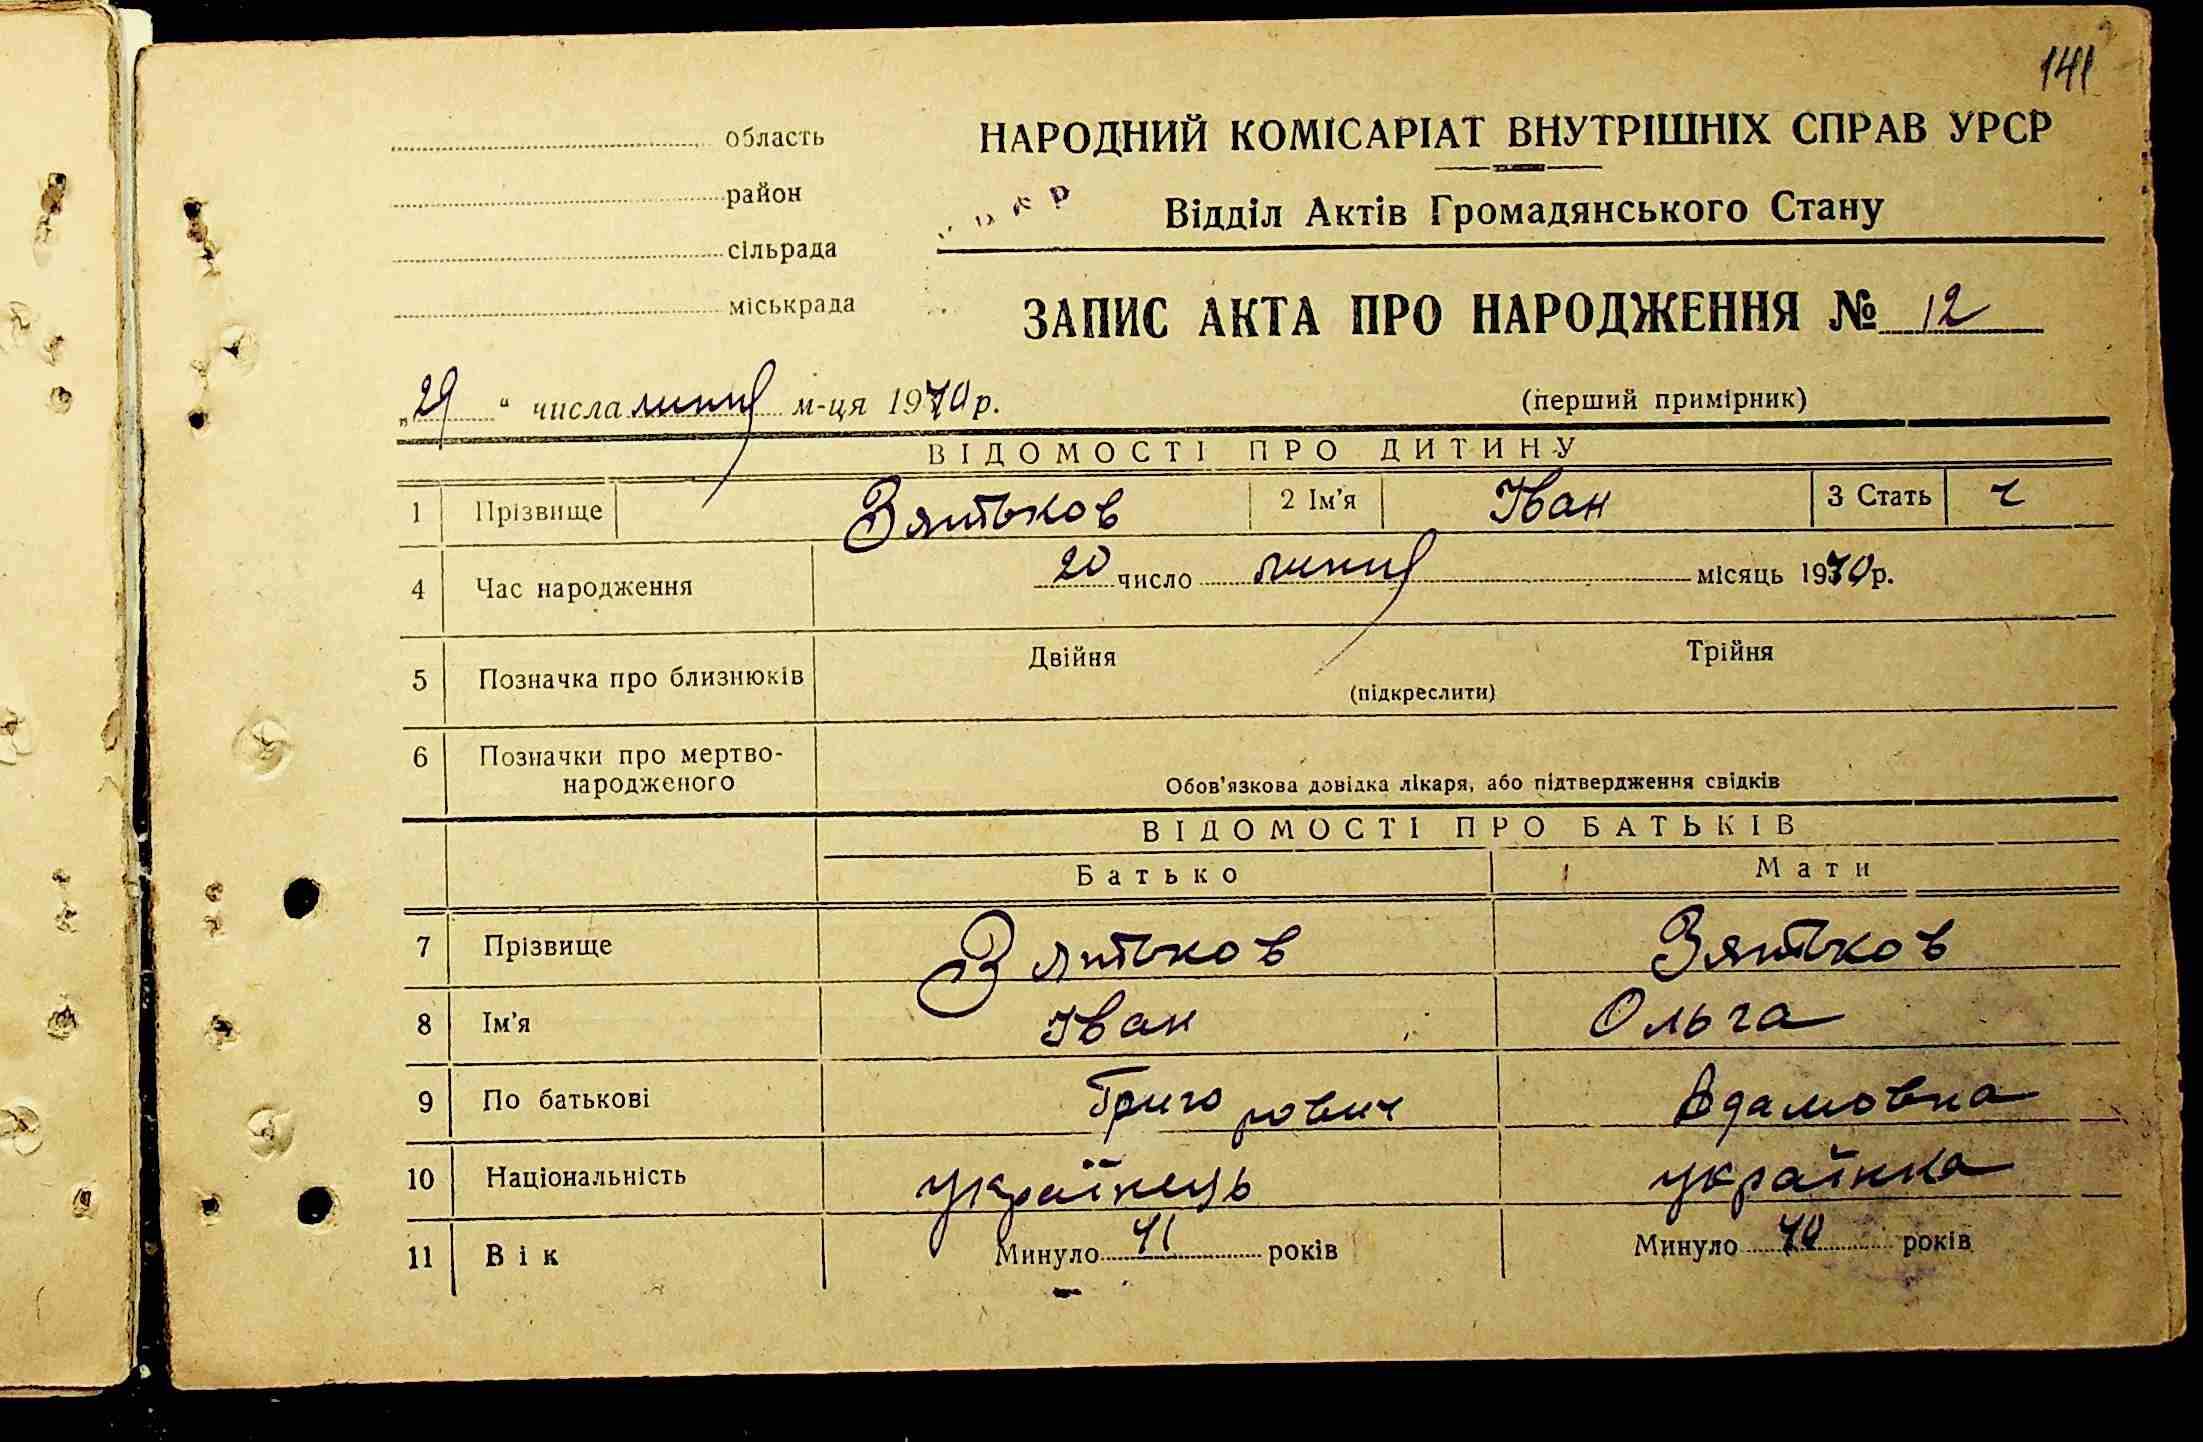 141
область
НАРОДНИЙ КОМІСАРІАТ ВНУТРІШНІХ СПРАВ УРСР
район
Відділ Актів Громадянського Стану
сільрада
міськрада
ЗАПИС АКТА ПРО НАРОДЖЕННЯ № 12
„29“ числа липня м-ця 1940 р.
(перший примірник)
ВІДОМОСТІ ПРО ДИТИНУ
1 Прізвище Зятьков 2 Ім'я Іван 3 Стать ч
4 Час народження 20 число липня місяць 1940 р.
5 Позначка про близнюків Двійня Трійня
(підкреслити)
6 Позначки про мертво-
народженого Обов'язкова довідка лікаря, або підтвердження свідків
ВІДОМОСТІ ПРО БАТЬКІВ
Батько Мати
7 Прізвище Зятьков Зятьков
8 Ім'я Іван Ольга
9 По батькові Григорович Адамовна
10 Національність українець українка
11 Вік Минуло 41 років Минуло 40 років